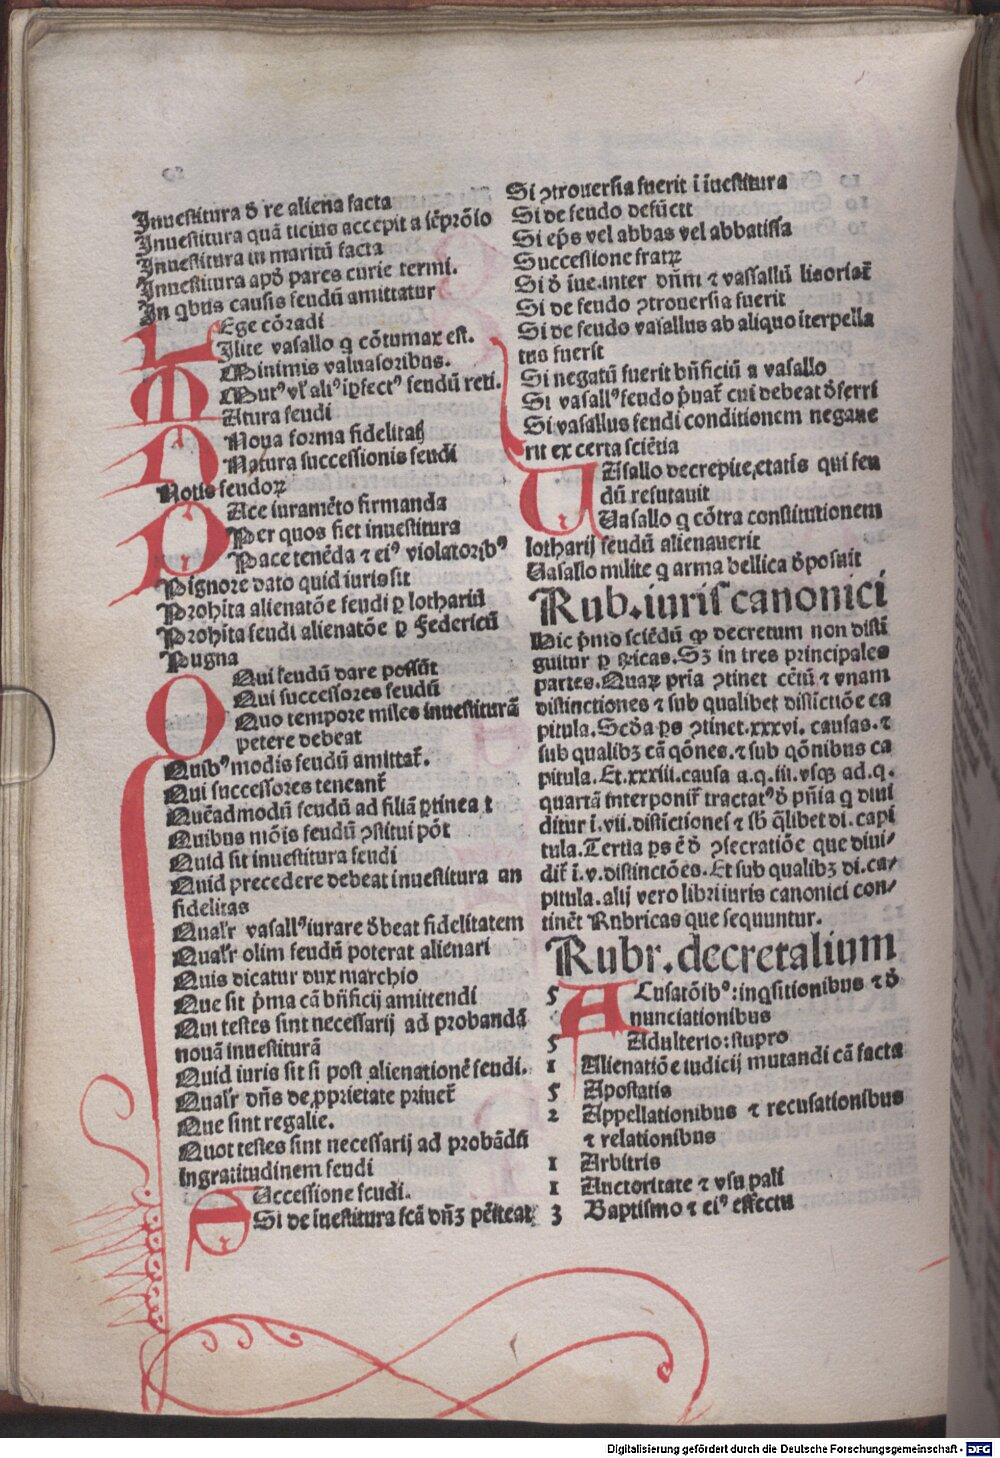 Inuestitura ð re aliena facta
Inuestitura quã ticius accepit a sēprōio
Inuestitura in maritũ facta
Inuestitura apð pares curie termi.
In qbus causis feudũ amittatur
LEge cõradi
Ilite vasallo q cõtumax est.
Minimis valuasoribus.
Mutꝰ vl' aliꝰ īpfectꝰ feudũ reti.
NAtura feudi
Noua forma fidelitatꝭ
Natura successionis feudi
Notis feudoꝝ
PAce iuramēto firmanda
Per quos fiet inuestitura
Pace tenēda ⁊ eiꝰ violatoribꝰ
Pignore dato quid iuris sit
Prohita alienatõe feudi ꝑ lothariũ
Prohita feudi alienatõe ꝑ Federicũ
Pugna
Qui feudũ dare possũt
Qui successores feudũ
Quo tempore miles inuestiturã
petere debeat
Quibꝰ modis feudũ amittat̄.
Qui successores teneant̄
Quēadmodũ feudũ ad filiã ꝑtineat
Quibus mõis feudũ ꝯstitui põt
Quid sit inuestitura feudi
Quid precedere debeat inuestitura an
fidelitas
Qualr̄ vasallꝰ iurare ðbeat fidelitatem
Qualr̄ olim feudũ poterat alienari
Quis dicatur dux marchio
Que sit p̄ma cã bñficij amittendi
Qui testes sint necessarij ad probandã
nouã inuestiturã
Quid iuris sit si post alienationē feudi.
Qualr̄ dñs de ꝓprietate priuet̄
Que sint regalie.
Quot testes sint necessarij ad probãdã
Ingratitudinem feudi
SUccessione feudi.
Si de inestitura fcã dñꝫ pēiteat
Si ꝯtrouersia fuerit ī iuestitura
Si de feudo defũctt
Si eps̄ vel abbas vel abbatissa
Successione fratꝝ
Si ð iue.inter dñm ⁊ vassallũ lisoriat̄
Si de feudo ꝯtrouersia fuerit
Si de feudo vasallus ab aliquo īterpella
tus fuerit
Si negatũ fuerit bñficiũ a vasallo
Si vasallꝰ feudo p̄uat̄ cui debeat ðferri
Si vasallus feudi conditionem negaue
rit ex certa sciētia
UAsallo decrepite,etatis qui feu
dũ refutauit
Vasallo q cõtra constitutionem
lotharij feudũ alienauerit
Vasallo milite q arma bellica ðposuit
Rub.iuris canonici
Hic p̄mo sciēdũ ꝙ decretum non disti
guitur ꝑ rꝛicas.Sꝫ in tres principales
partes.Quaꝝ pria ꝯtinet cētũ ⁊ vnam
distinctiones ⁊ sub qualibet distictiõe ca
pitula.Scð̄a ps̄ ꝯtinet.xxxvi. causas.⁊
sub qualibꝫ cã qõnes.⁊ sub qõnibus ca
pitula.Et.xxxiii.causa a.q.iii.vsqꝫ ad.q.
quartã interponit̄ tractatꝰ ð pñia q diui
ditur ī.vii.distictiones ⁊ sb̄ qlibet di.capi
tula.Tertia ps ē ð ꝯsecratiõe que diui/
dit̄ ī.v.distinctões.Et sub qualibꝫ di.ca/
pitula.alij vero libri iuris canonici con/
tinēt Rubricas que sequuntur.
Rubr.decretalium
5 ACusatõibꝰ:inqsitionibus ⁊ ð
nunciationibus
5 Adulterio:stupro
1 Alienatiõe iudicij mutandi cã facta
5 Apostatis
2 Appellationibus ⁊ recusationibus
⁊ relationibus
1 Arbitris
1 Auctoritate ⁊ vsu pali
3 Baptismo ⁊ eiꝰ effectu
Digitalisierung gefördert durch die Deutsche Forschungsgemeinschaft - DFG